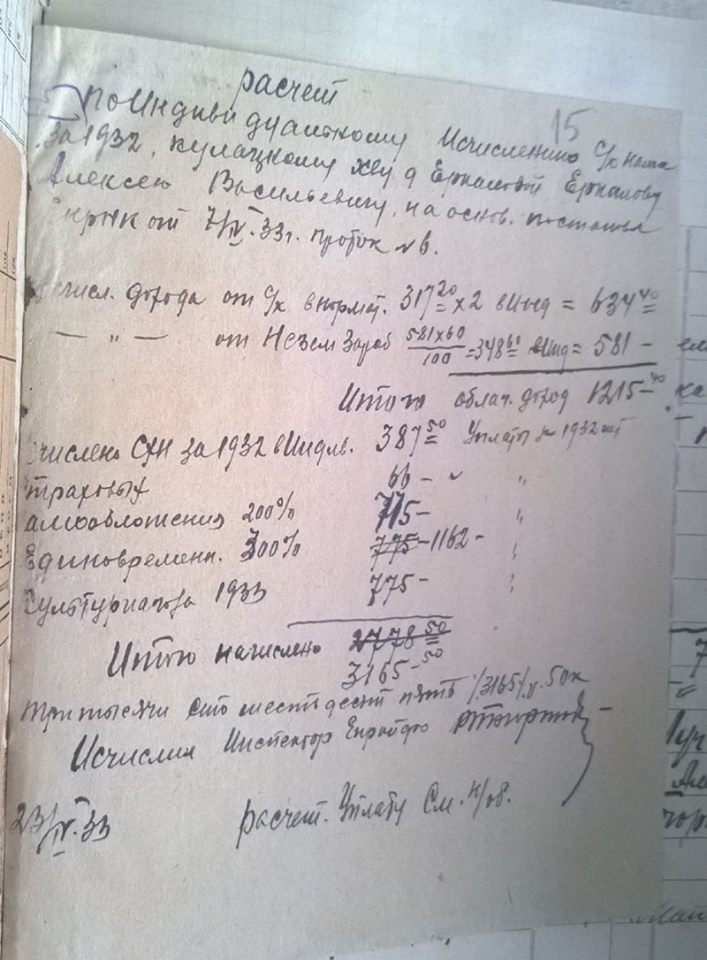 расчет
15
по Индивидуальному Исчислению с/х нало
за 1932, кулацкому хву д Ермаловой Ермалову
Алексею Васильевичу, на основ. постановл
 от 7/IV.33г. проток №6.
числ. дохода от с/х в нормат. 317 20 x 2 в Инд = 634 40
— " — от Незем Зараб 581x60/100 = 348 60 в Инд = 581 —
Итого облаг. доход 1215 — 40
числено СХН за 1932 в Индив. 387 50 Уплаты за 1932
траховых 66 — "
амообложения 200% 775 — "
Единовремени. 300% 775 — 1162 — "
Культурналога 1933 775 — "
Итого начислено 2778 50
3165 — 50
три тысячи сто шестьдесят пять /3165/ р. 50к
Исчислил Инспектор
23/IV.33 расчет. Уплату См. н/об.